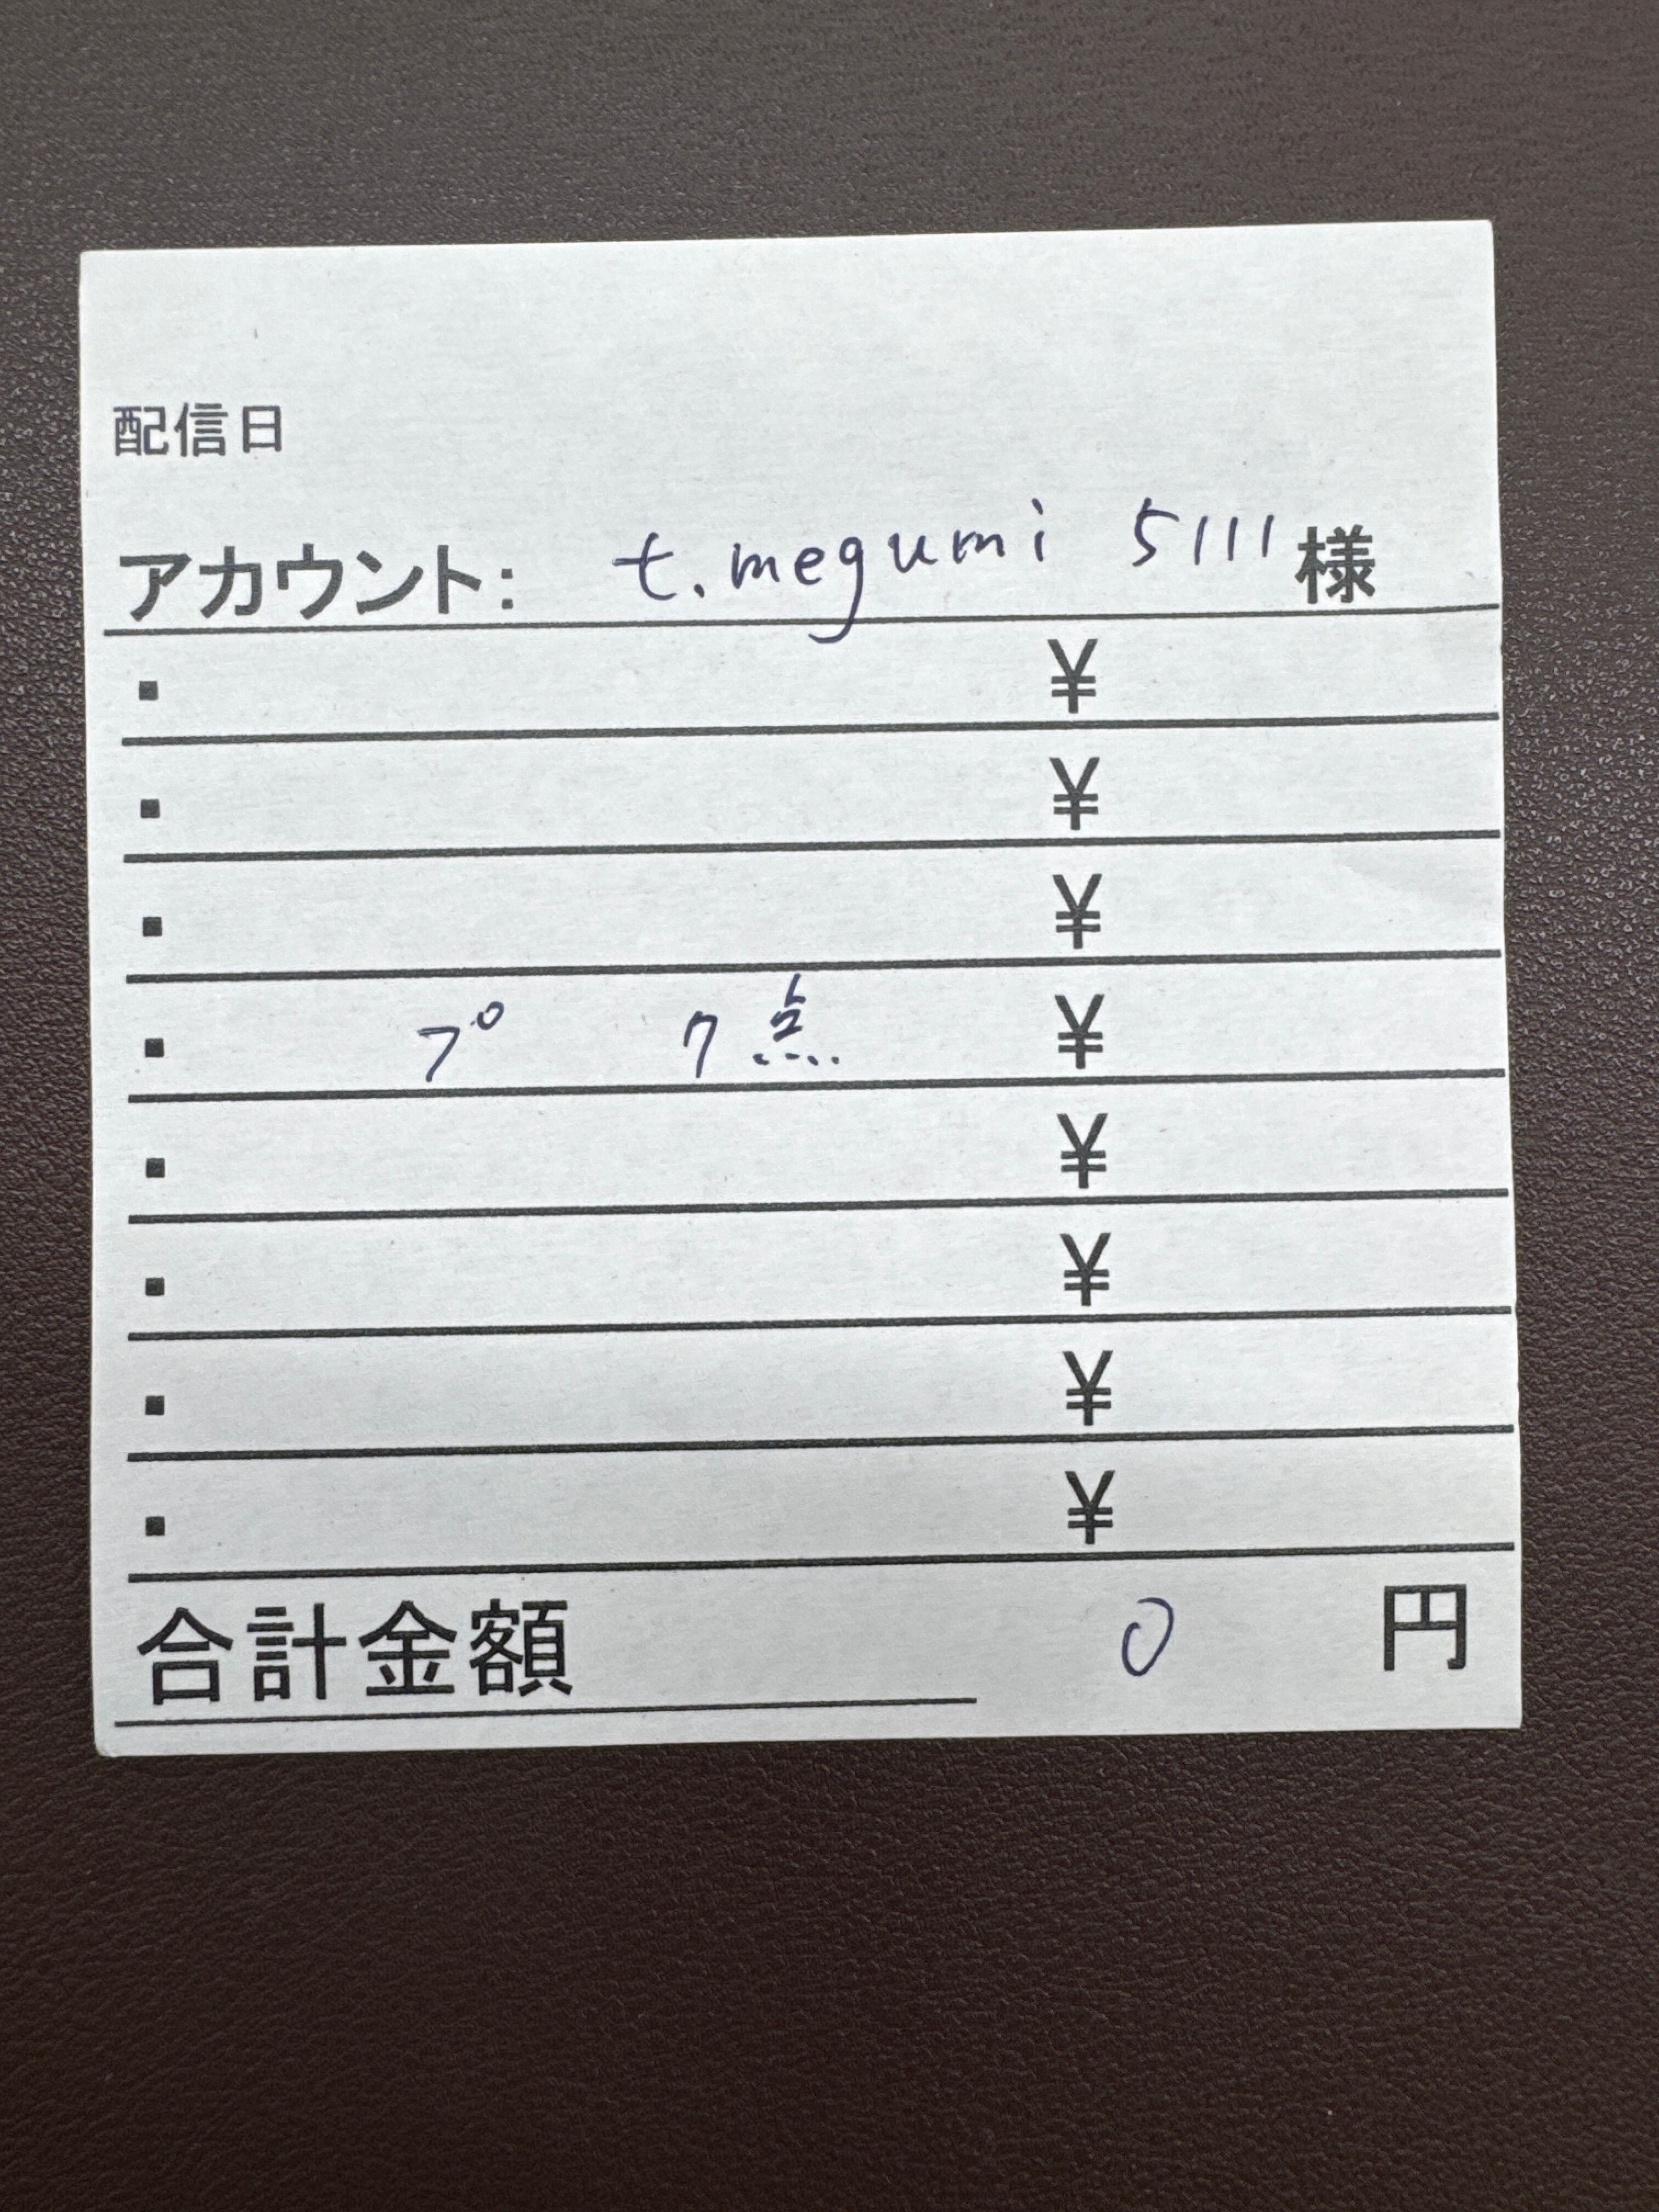 配信日
アカウント: t.megumi 5111 様
・ ¥
・ ¥
・ ¥
・ プ 7点 ¥
・ ¥
・ ¥
・ ¥
・ ¥
合計金額 0 円